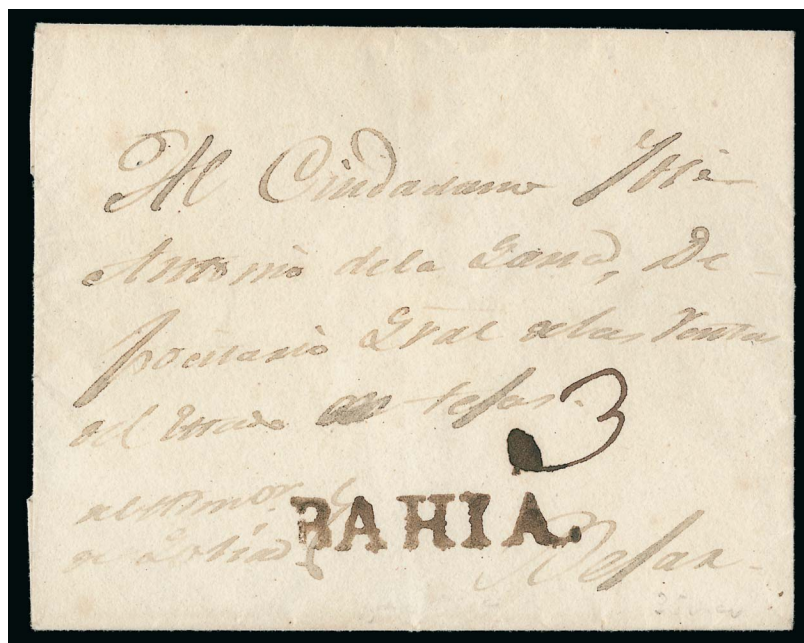 Al Ciudadano José
Antonio de la Garza, De-
positario Gral de las Rentas
del Estado en Tejas.
3
BAHIA.
Bejar